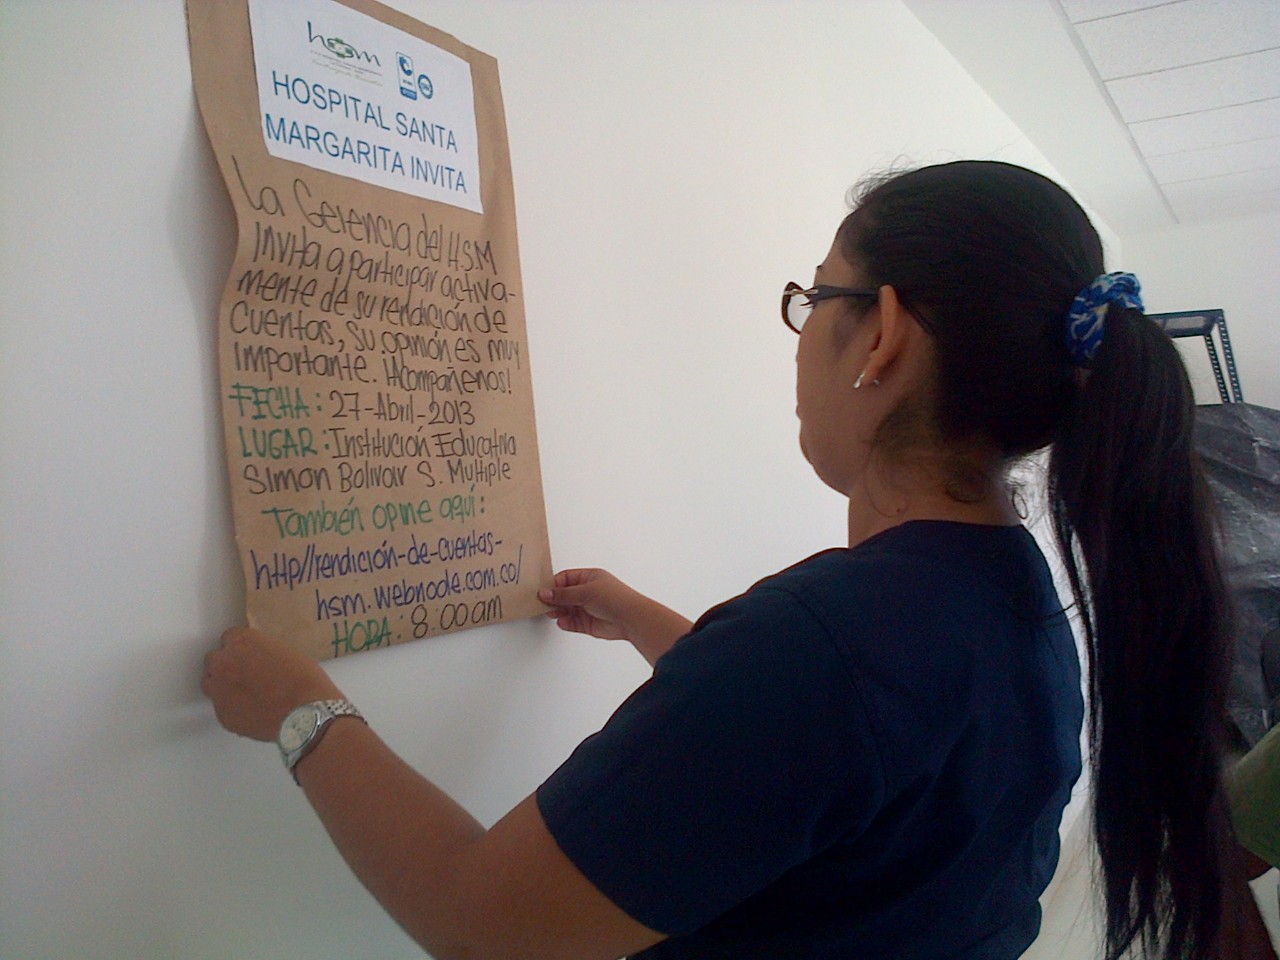 hsm
HOSPITAL SANTA
MARGARITA INVITA
La Gerencia del H.S.M
Invita a participar activa-
mente de su rendición de
cuentas, su opinión es muy
importante. ¡Acompáñenos!
FECHA: 27-Abril-2013
LUGAR: Institución Educativa
Simon Bolivar S. Multiple
También opine aquí:
http//rendición-de-cuentas-
hsm.webnode.com.co/
HORA: 8:00 am